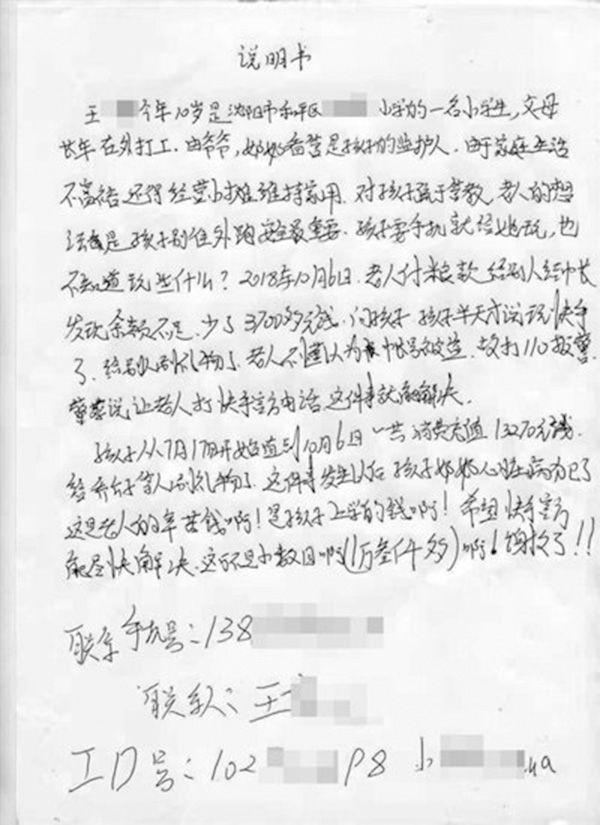 说明书
王 今年10岁是沈阳市和平区 小学的一名小学生,父母
长年在外打工,由爷爷,奶奶看管是孩子的监护人.由于家庭生活
不富裕还得经营小摊维持家用.对孩子疏于管教,老人的想
法就是孩子别往外跑安全最重要.孩子要手机就给她玩,也
不知道玩些什么?2018年10月6日.老人付米款给别人
发现余额不足.少了3700多元钱.问孩子 孩子半天才说玩快手
了.给别人刷礼物了.老人不懂认为帐号被盗.故打110报警.
警察说让老人打快手官方电话这件事就能解决.
孩子从7月17日开始直到10月6日一共消费充值13270元钱
给乔 等人刷礼物了.这件事发生以后孩子奶奶心脏病都犯了
这是老人的辛苦钱啊!是孩子上学的钱啊!希望快手官方
能尽快解决.这可不是小数目啊(1万叁仟多)啊!谢谢了!!
联系手机号:138
联系人:王
ID号:102 P8 小 .na